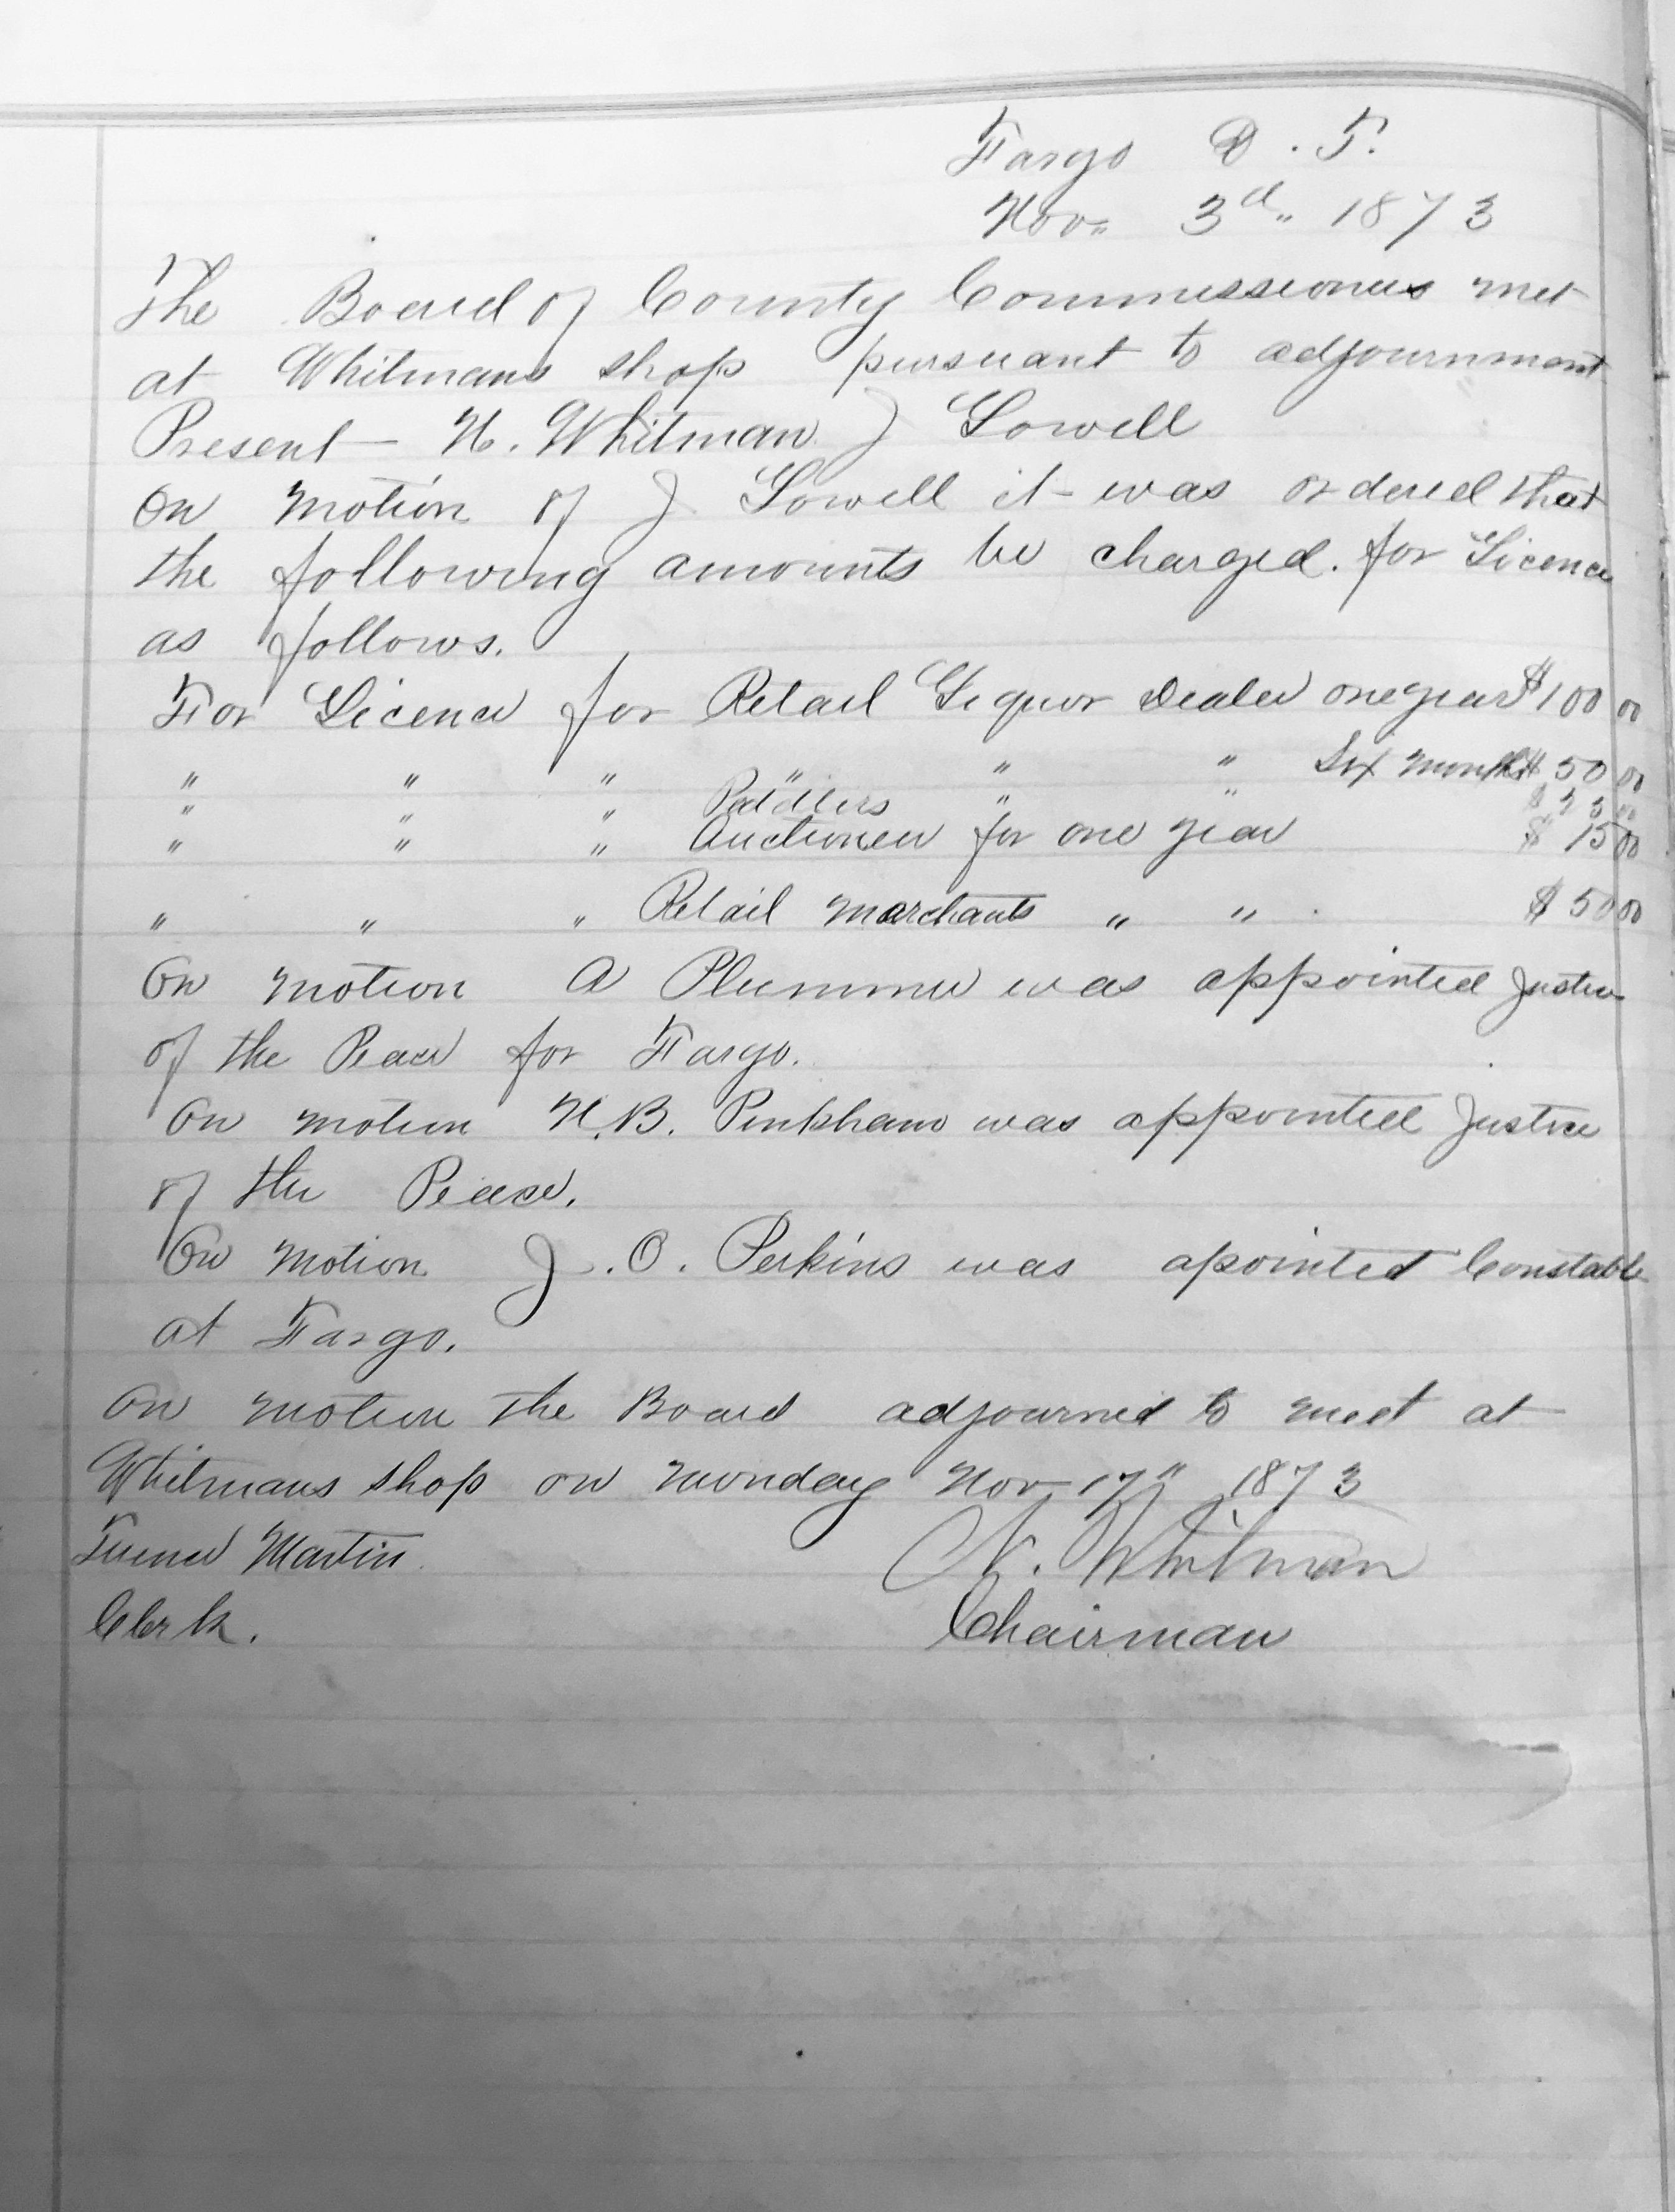 Fargo D. T.
Nov. 3d. 1873
The Board of County Commissioners met
at Whitmans shop pursuant to adjournment
Present - N. Whitman J Lowell
On motion of J Lowell it was ordered that
the following amounts be charged. for Licence
as follows.
For Licence for Retail Liquor Dealer one year $100 00
" " " " " " Six months $ 50 00
" " " Peddlers " " $
" " " Auctioneer for one year $ 15 00
" " " Retail marchants " " $ 50 00
On motion A Plummer was appointed Justice
of the Peace for Fargo.
On motion N.B. Pinkham was appointed Justice
of the Peace.
On motion J. O. Perkins was apointed Constable
at Fargo.
On motion the Board adjourned to meet at
Whitmans shop on Monday Nov 17" 1873
Terence Martin
Clerk.
N. Whitman
Chairman